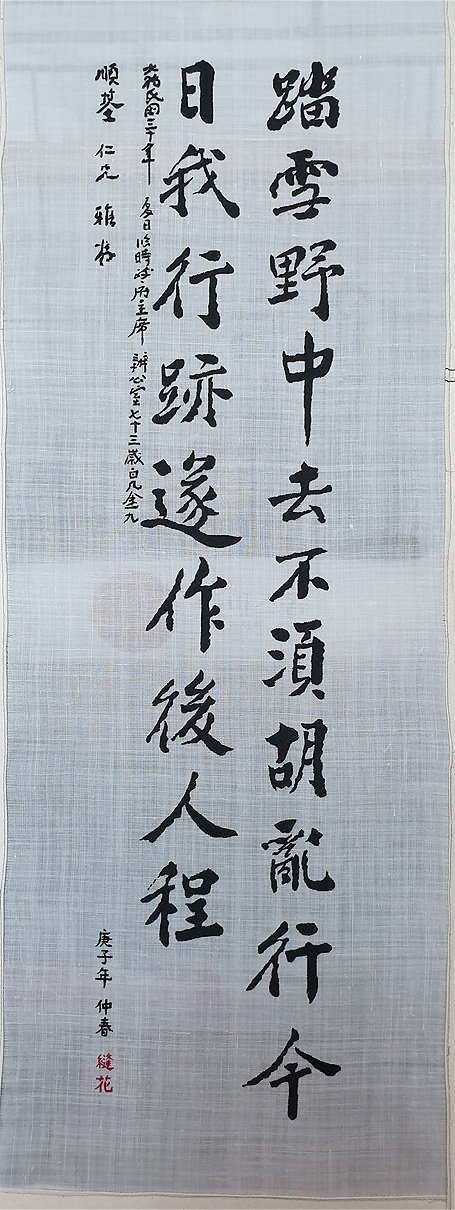 踏雪野中去不須胡亂行今
日我行跡遂作後人程
大韓民國三十年 夏日 臨時政府主席 辦公室七十三歲白凡金九
順基 仁兄 雅
庚子年 仲春 縫花